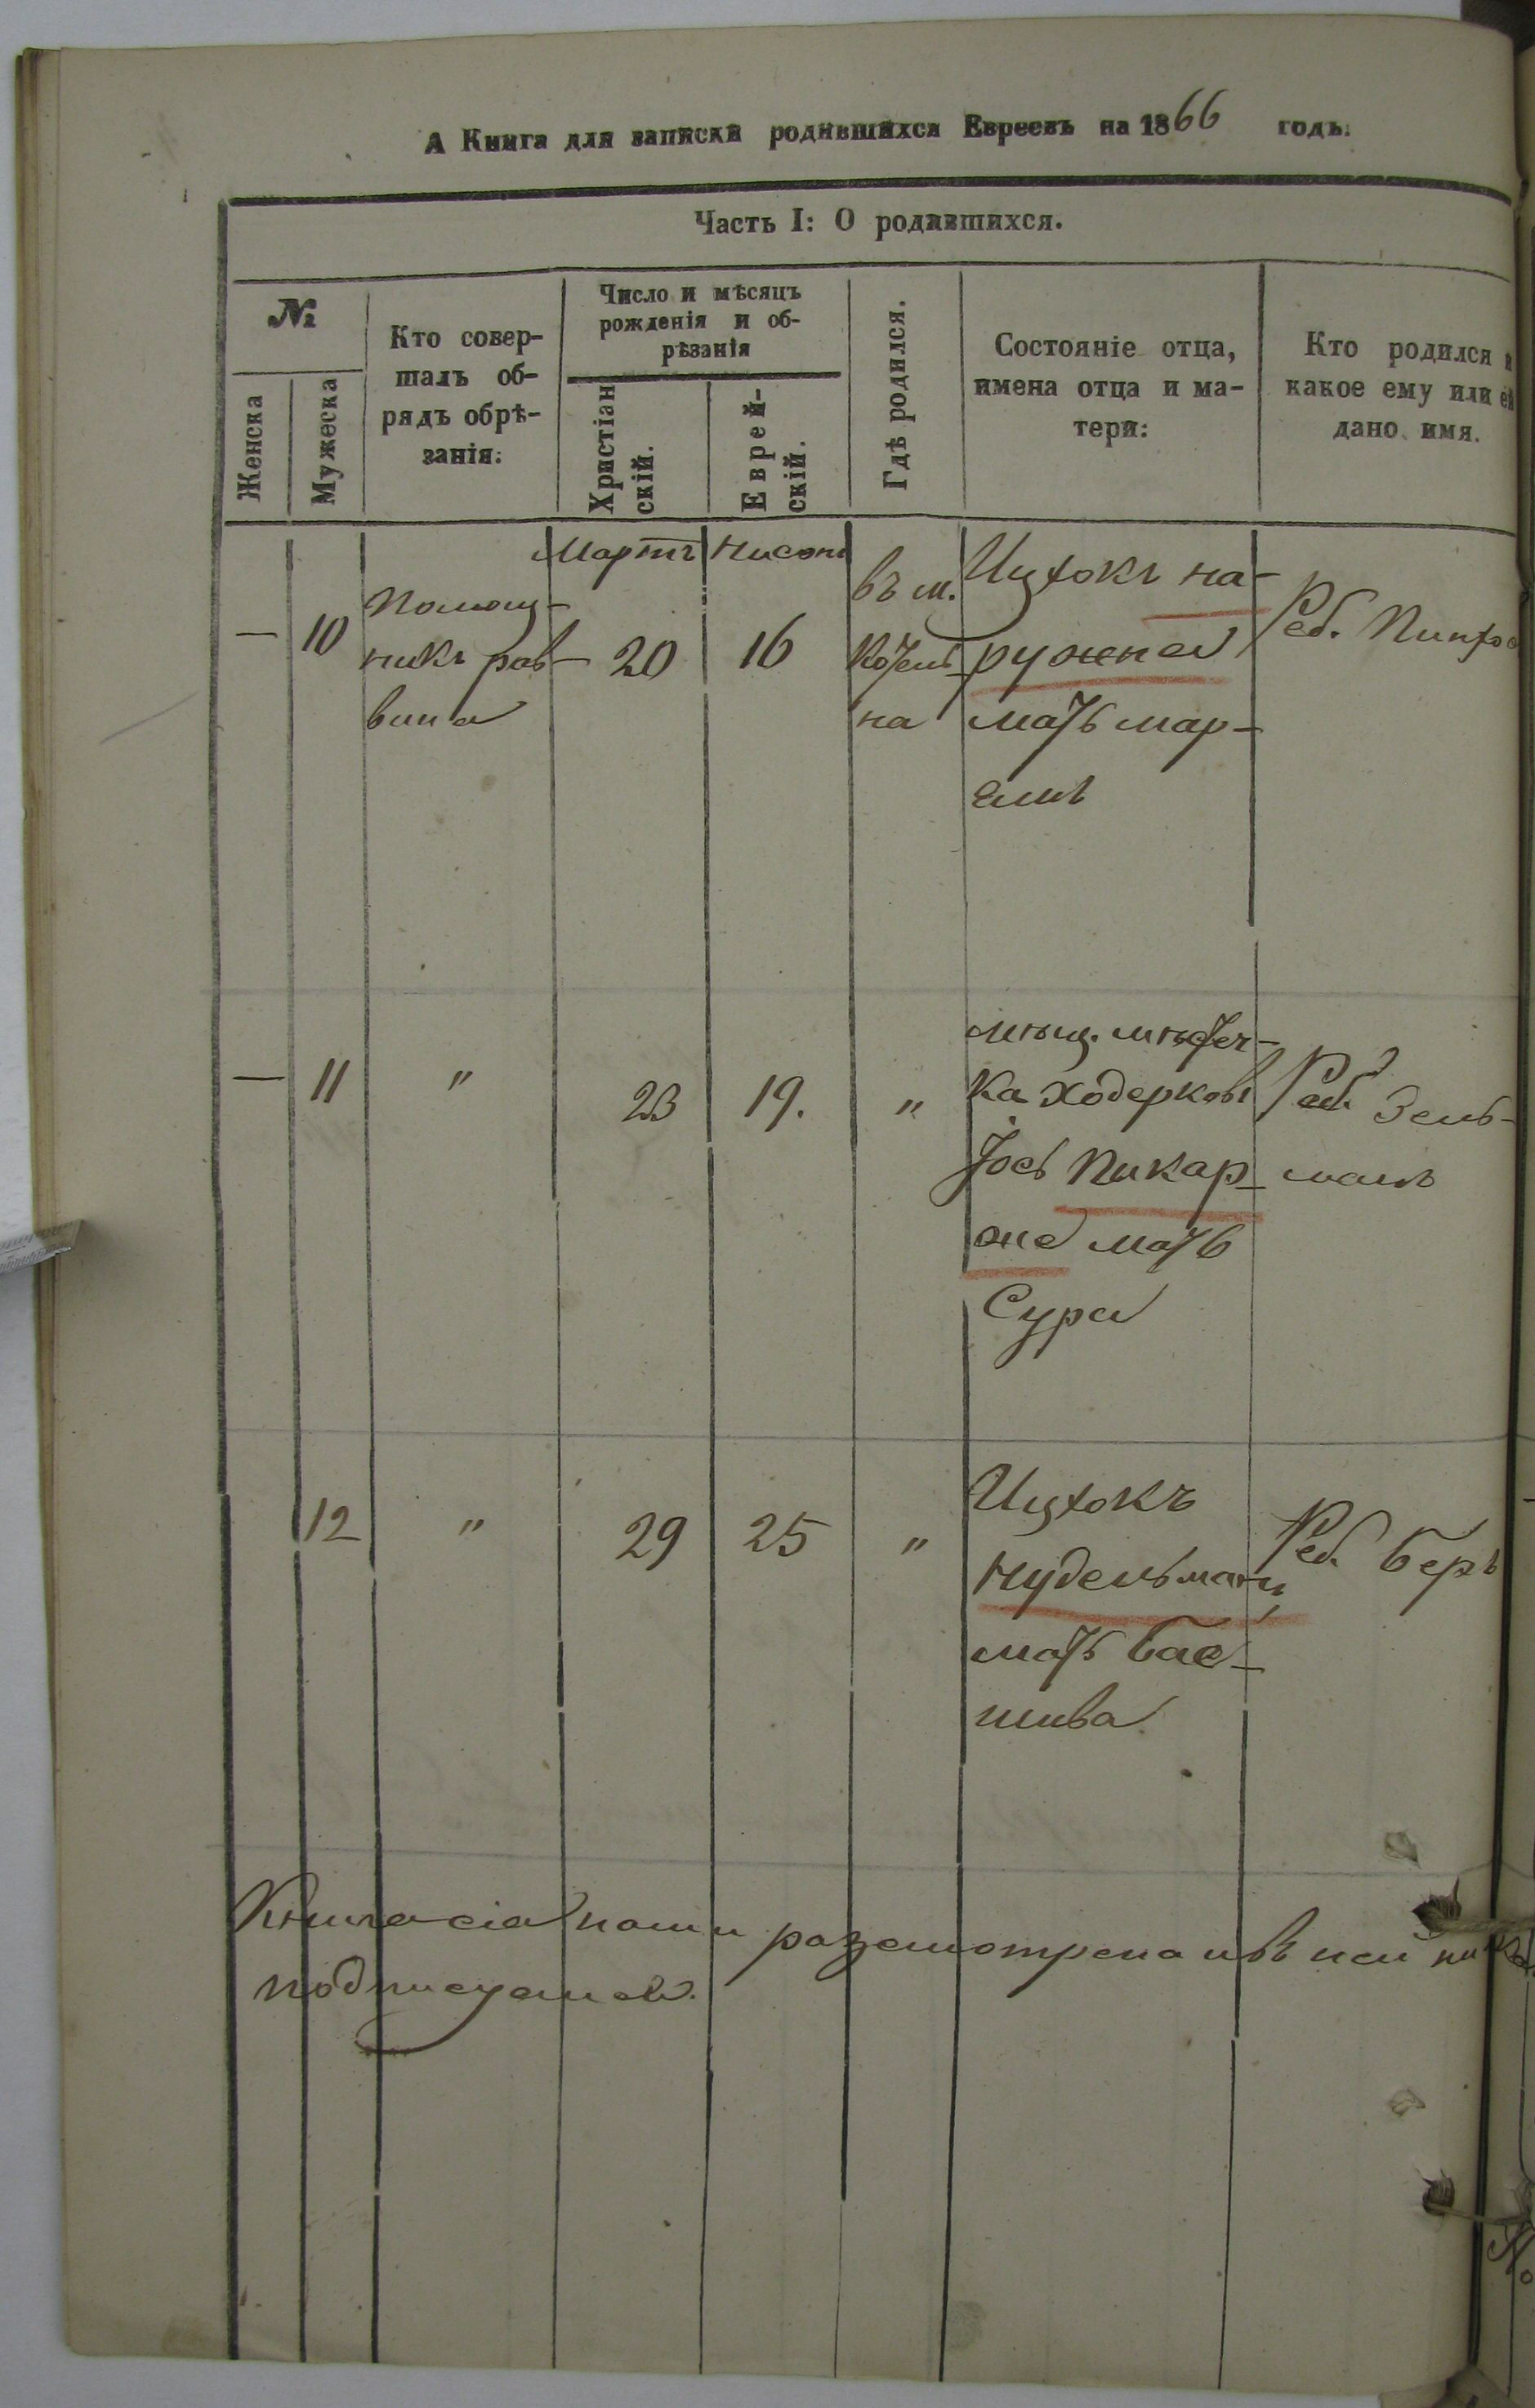 А Книга для записки родившихся Евреевъ на 1866 годъ.
Часть I: О родившихся.
№
Женска
Мужеска
Кто совер-
шалъ об-
рядъ обрѣ-
занія:
Число и мѣсяцъ
рожденія и об-
рѣзанія
Христіан
скій.
Еврей-
скій.
Гдѣ родился.
Состояніе отца,
имена отца и ма-
тери:
Кто родился и
какое ему или ей
дано имя.
Мартъ Нисонъ
— 10
Помощ-
никъ рав-
вина
20 16
въ м.
Котель-
на
Ицхокъ На-
ружная
мать Мар-
Реб. Пинхо
— 11 " 23 19. "
мѣщ. мѣстеч-
ка Ходоркова
Іось Пикар-
же мать
Сура
Реб. Зель-
манъ
12 " 29 25 "
Ицхокъ
Нудельманъ
мать Бас-
шива
Реб. Беръ
Книга сія нами разсмотрена и въ ней
подписуемся.